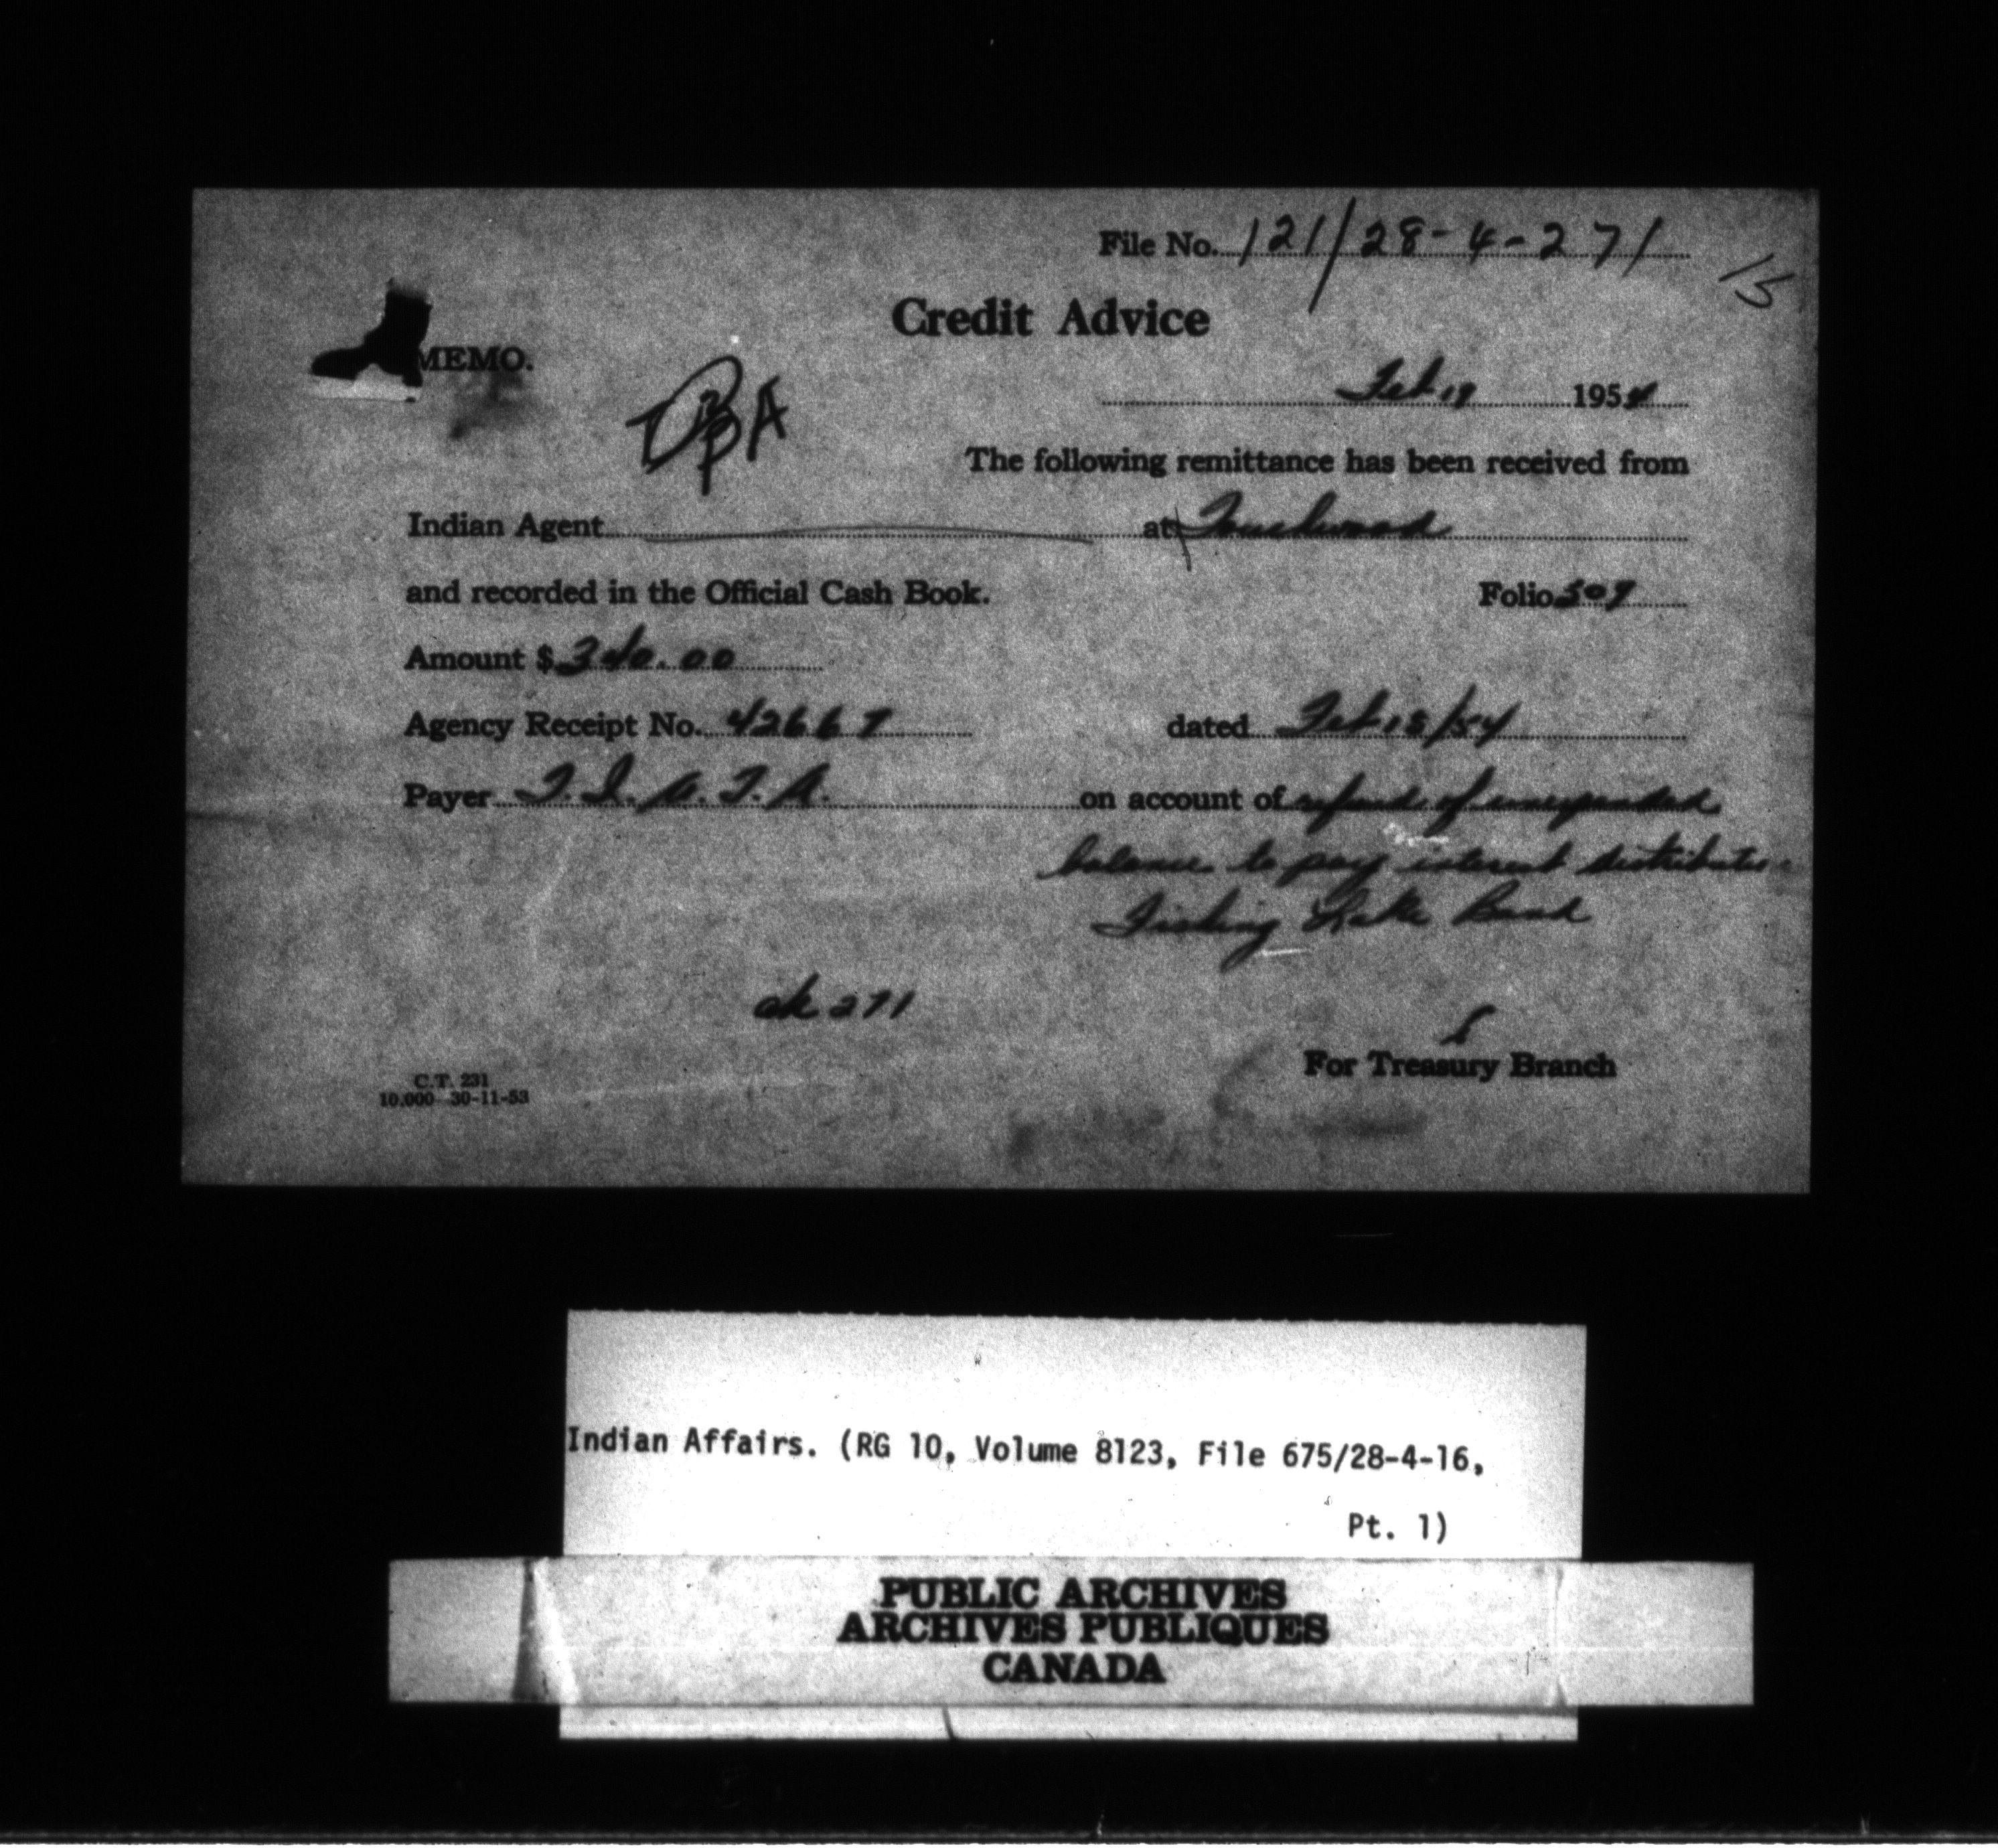 File No. 121/28-4-271
15
Credit Advice
MEMO.
Feb 19 1954
The following remittance has been received from
Indian Agent at Touchwood
and recorded in the Official Cash Book. Folio 509
Amount $ 340.00
Agency Receipt No. 42667 dated Feb 18/54
Payer T.I.A.T.A. on account of refund of unexpended
balance to pay interest distribution
Fishing Lake Band
ck 271
For Treasury Branch
C.T. 231
10,000 30-11-53
Indian Affairs. (RG 10, Volume 8123, File 675/28-4-16,
Pt. 1)
PUBLIC ARCHIVES
ARCHIVES PUBLIQUES
CANADA